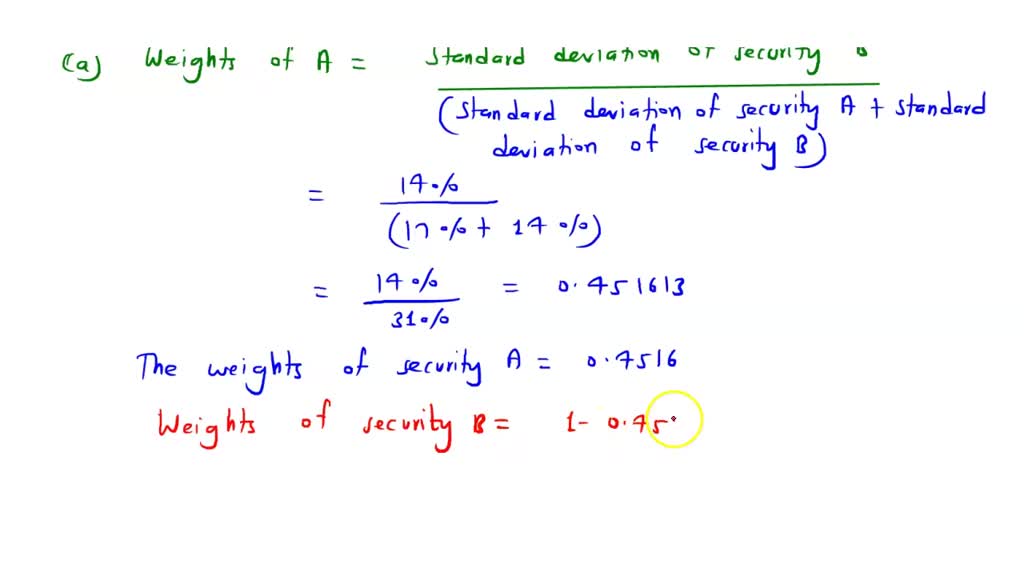 (a) Weights of A = Standard deviation of security B
(Standard deviation of security A + Standard
deviation of security B)
= 14% / (17% + 14%)
= 14% / 31% = 0.451613
The weights of security A = 0.4516
Weights of security B = 1 - 0.45